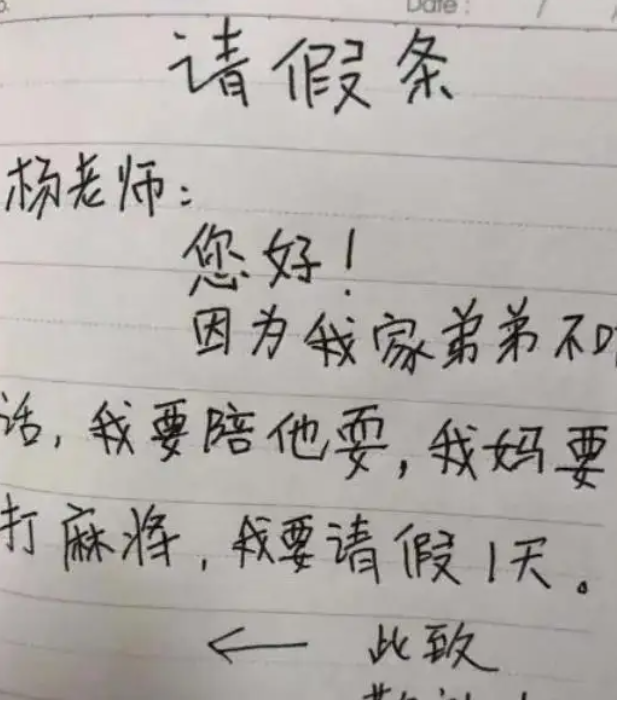 Date: / /
请假条
杨老师:
您好!
因为我家弟弟不
话,我要陪他耍,我妈要
打麻将,我要请假1天。
← 此致